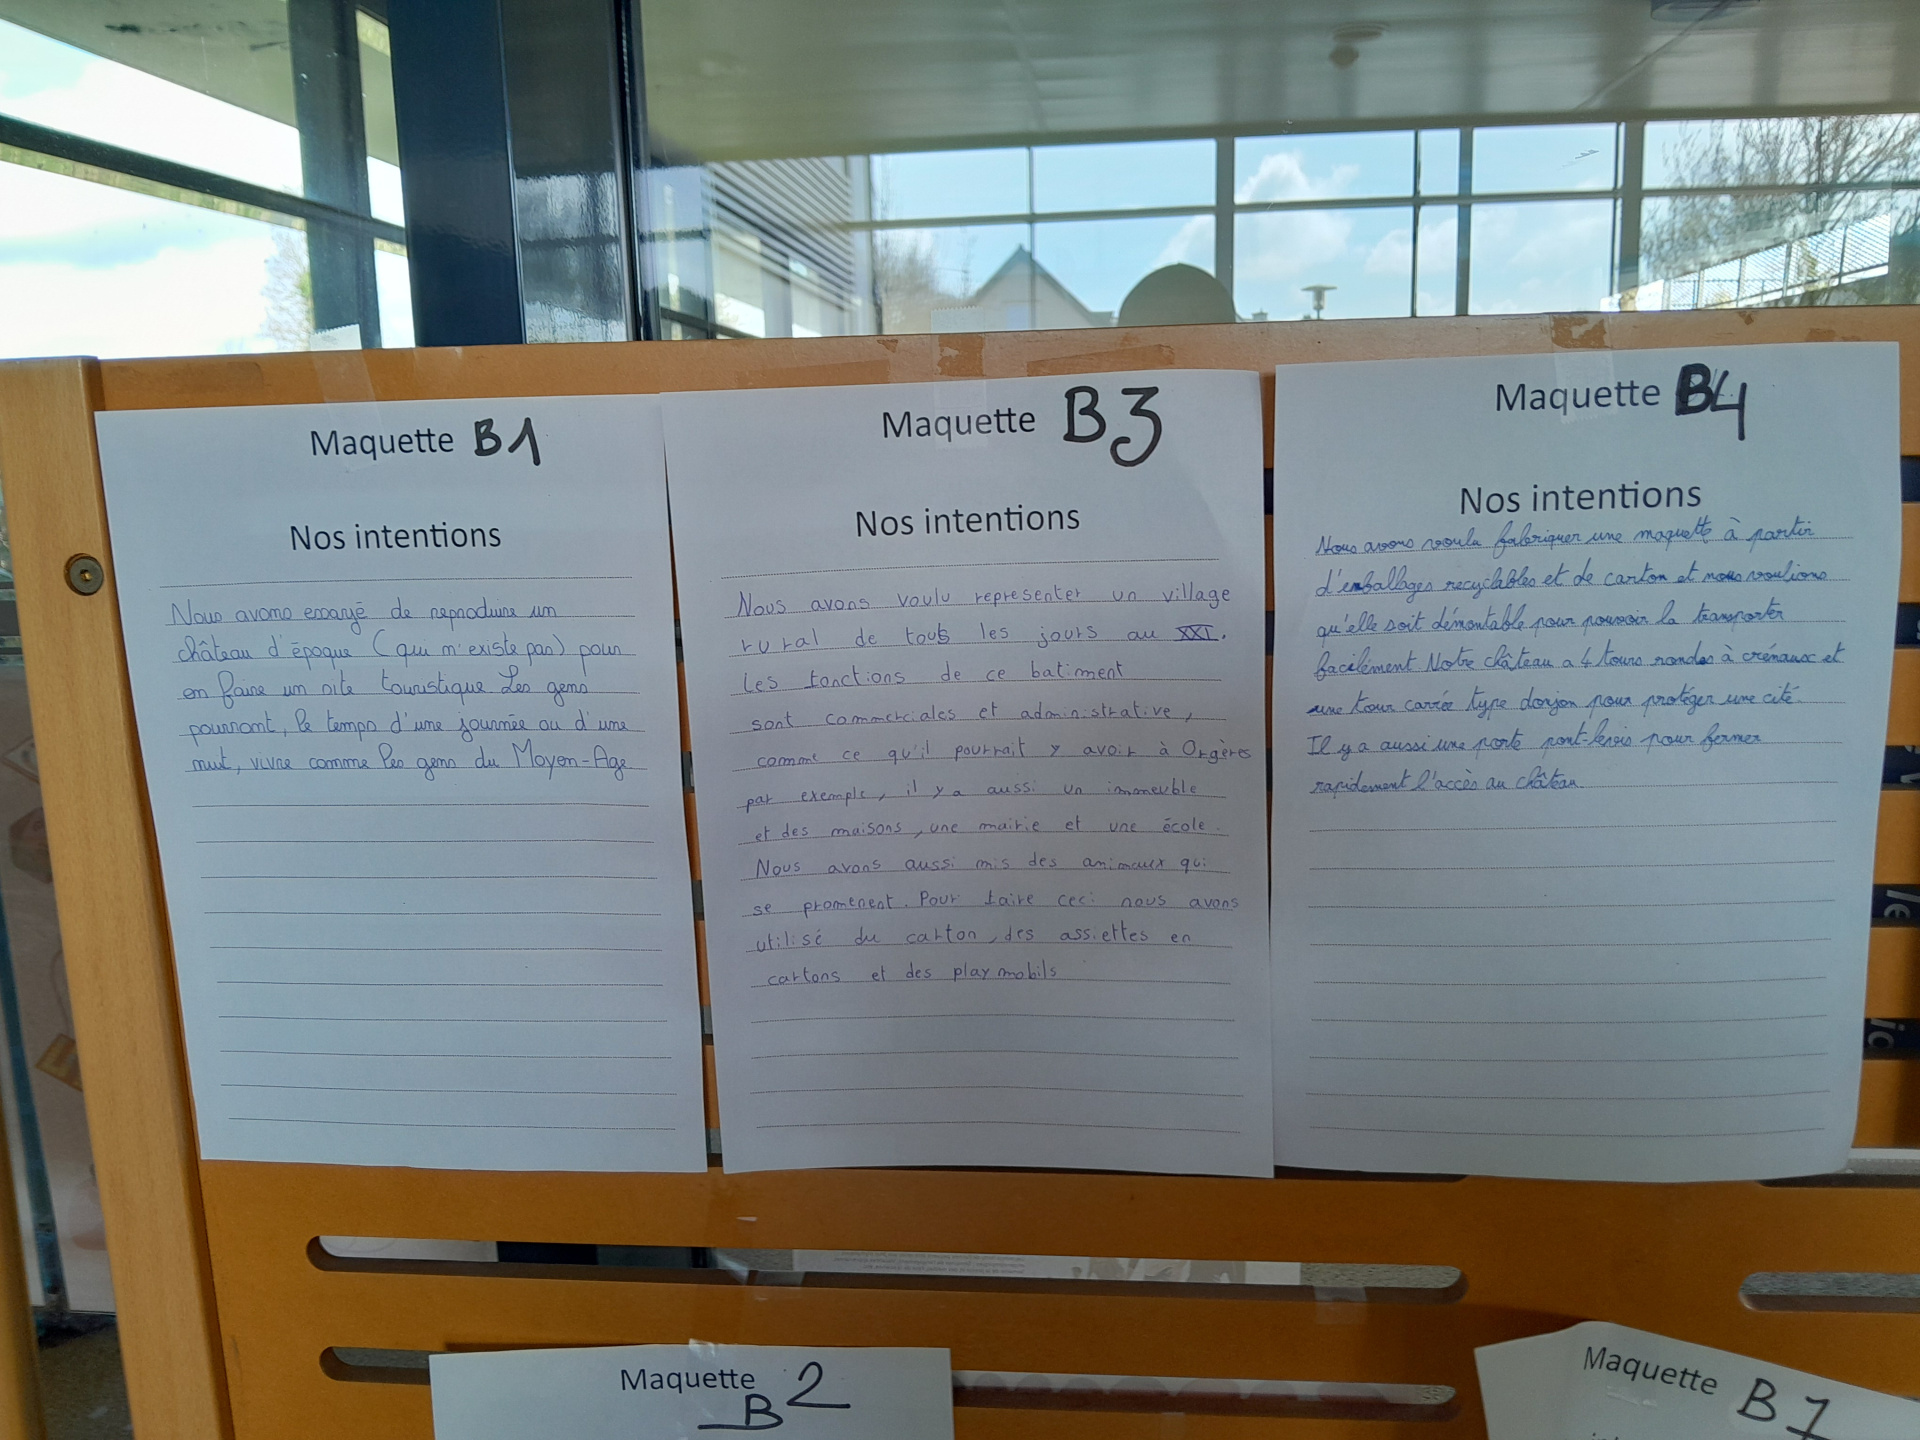 Maquette B1
Nos intentions
Nous avons essayé de reproduire un
château d'époque (qui n'existe pas) pour
en faire un site touristique Les gens
pourront, le temps d'une journée ou d'une
nuit, vivre comme les gens du Moyen-Age
Maquette B3
Nos intentions
Nous avons voulu representer un village
rural de touts les jours au XXI.
Les fonctions de ce batiment
sont commerciales et administrative,
comme ce qu'il pourrait y avoir à Orgères
par exemple, il y a aussi un immeuble
et des maisons, une mairie et une école.
Nous avons aussi mis des animaux qui
se promenent. Pour faire ceci nous avons
utilisé du carton, des assiettes en
cartons et des playmobils
Maquette B4
Nos intentions
Nous avons voulu fabriquer une maquette à partir
d'emballages recyclables et de carton et nous voulions
qu'elle soit démontable pour pouvoir la transporter
facilement Notre château a 4 tours rondes à crénaux et
une tour carrée type donjon pour protéger une cité.
Il y a aussi une porte pont-levis pour fermer
rapidement l'accès au château.
Maquette B2
Maquette B7